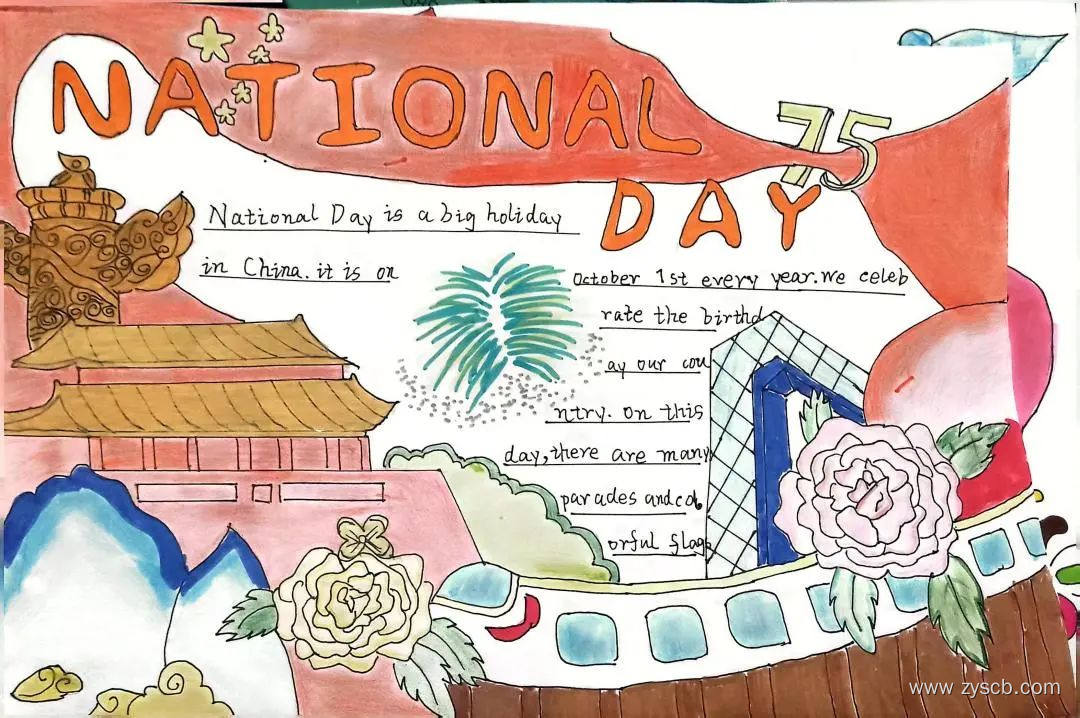 NATIONAL
75
DAY
National Day is a big holiday
in China. it is on
October 1st every year. We celeb
rate the birthd
ay our cou
ntry. On this
day, there are many
parades and col
orful flags
www.zyscb.com